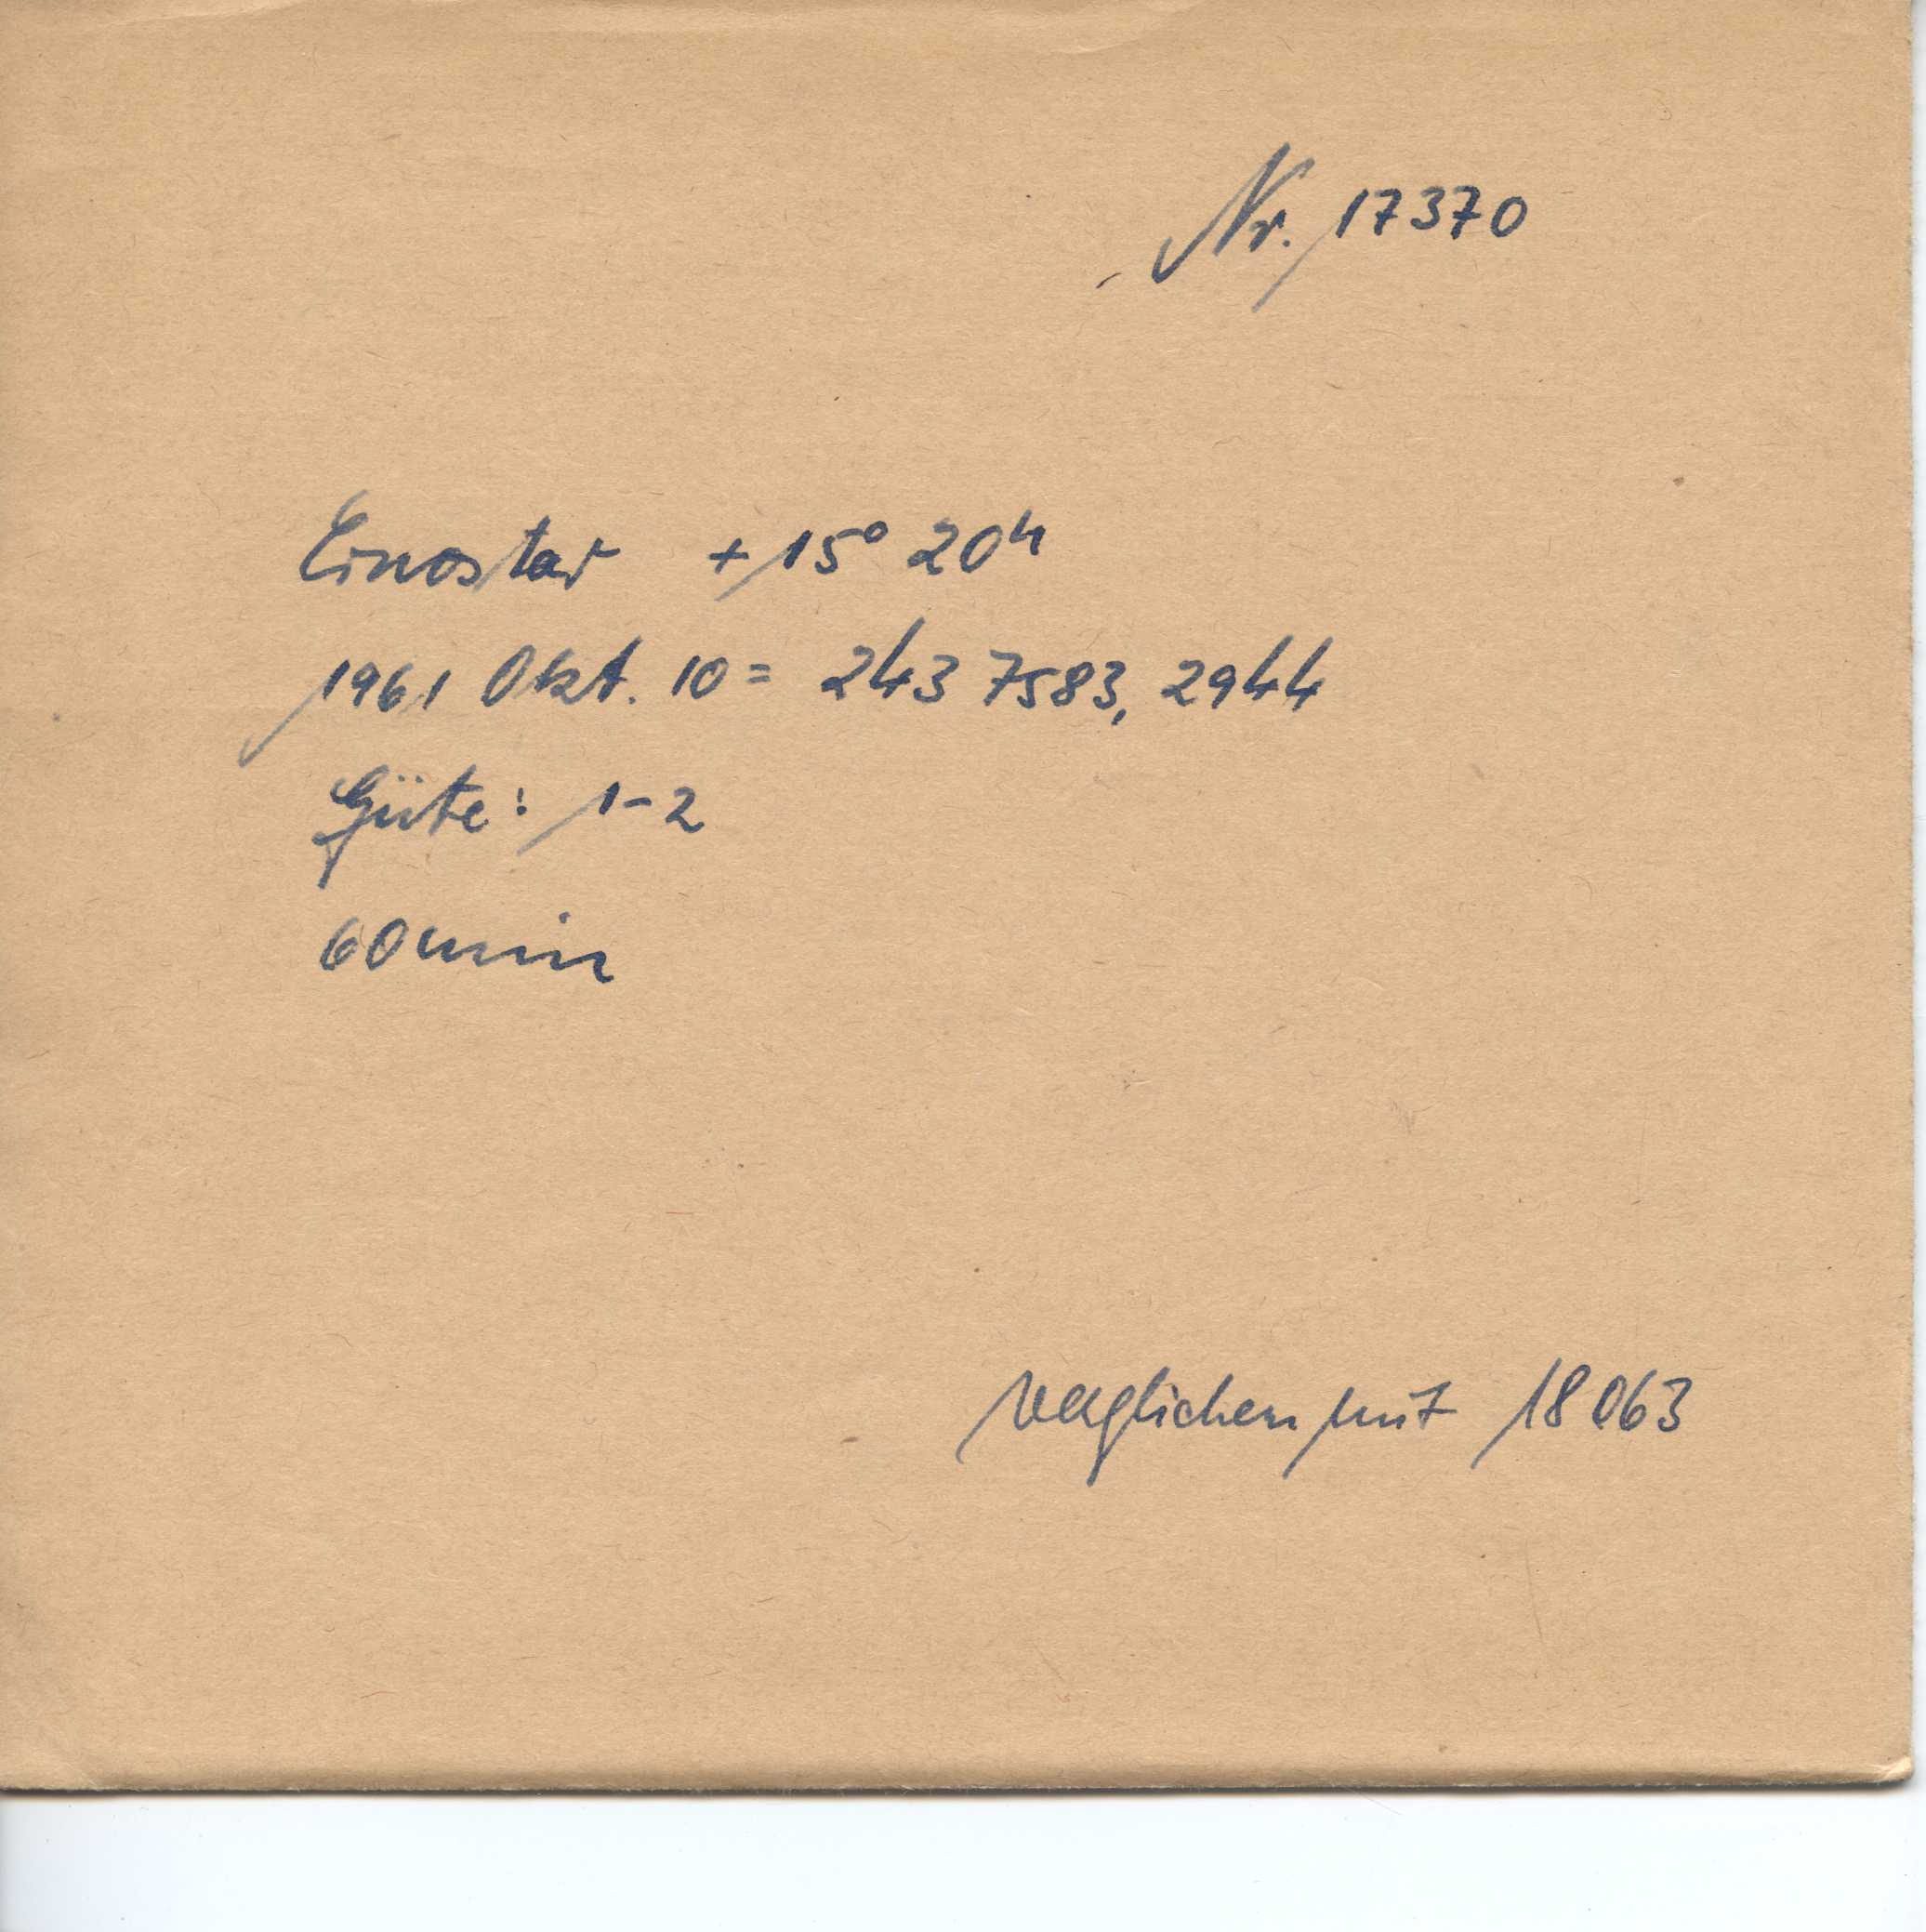 Nr. 17370
Ernostar +15° 20h
1961 Okt. 10 = 243 7583, 2944
Güte: 1-2
60 min
verglichen mit 18063